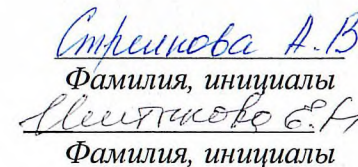 Стрелкова А.В
Фамилия, инициалы
Е.Н
Фамилия, инициалы